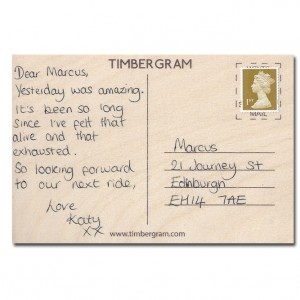 TIMBERGRAM
Dear Marcus,
Yesterday was amazing.
It's been so long
since I've felt that
alive and that
exhausted.
So looking forward
to our next ride,
Love
Katy
xx
1st
Marcus
21 Journey St
Edinburgh
EH14 7AE
www.timbergram.com